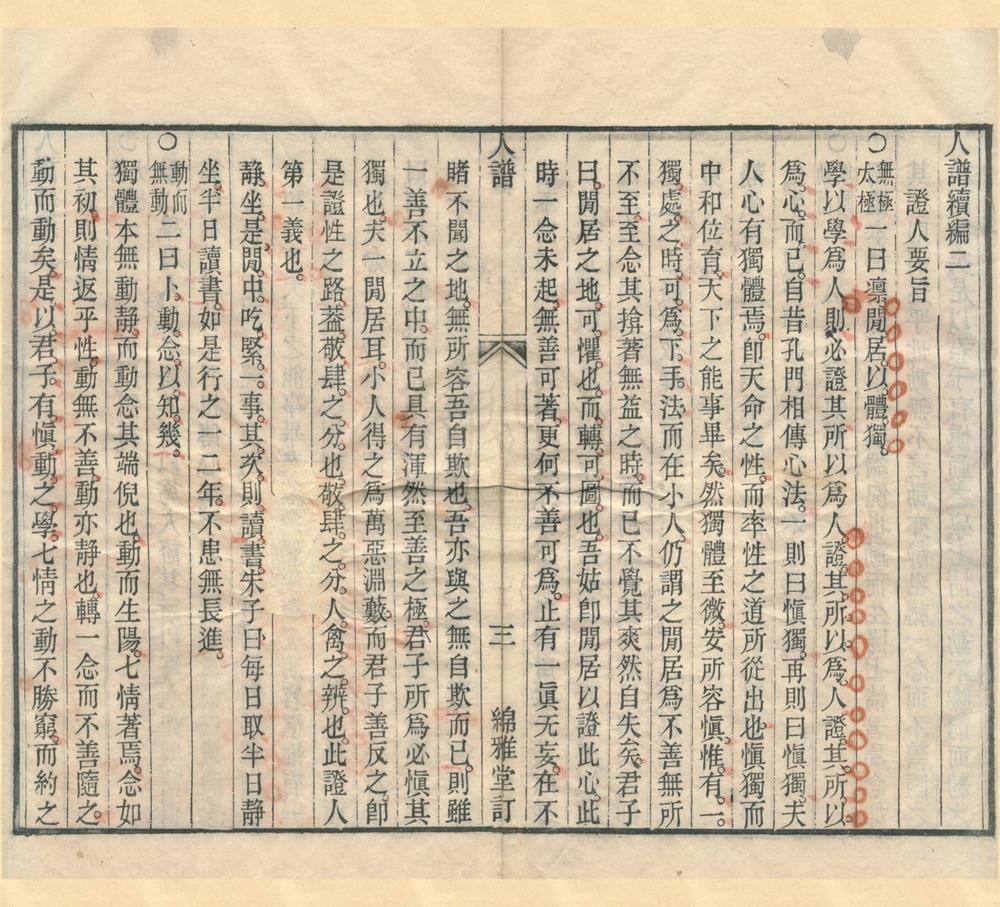 人譜續編二
證人要旨
〇無極太極一曰凛閒居。以體獨。
學以學爲人。則必證其所以爲人。證其所以爲人。證其所以
爲心而已。自昔孔門相傳心法。一則曰愼獨。再則曰愼獨。夫
人心有獨體焉。卽天命之性。而率性之道所從出也。愼獨而
中和位育。天下之能事畢矣。然獨體至微。安所容愼。惟有一
獨處之時。可爲下手法。而在小人。仍謂之閒居爲不善無所
不至。至念其揜著無益之時。而已不覺其爽然自失矣。君子
曰。閒居之地。可懼也。而轉可圖也。吾姑卽閒居以證此心。此
時一念未起。無善可著。更何不善可爲。止有一眞无妄。在不
人譜 三 綿雅堂訂
睹不聞之地。無所容吾自欺也。吾亦與之無自欺而已。則雖
一善不立之中。而已具有渾然至善之極。君子所爲必愼其
獨也。夫一閒居耳。小人得之爲萬惡淵藪。而君子善反之。卽
是證性之路。蓋敬肆之分也。敬肆之分。人禽之辨也。此證人
第一義也。
靜坐是閒中吃緊一事。其次則讀書。朱子曰。每日取半日靜
坐。半日讀書。如是行之一二年。不患無長進。
〇動而無動二曰卜動念。以知幾。
獨體本無動靜。而動念其端倪也。動而生陽。七情著焉。念如
其初。則情返乎性。動無不善。動亦靜也。轉一念而不善隨之。
動而動矣。是以君子有愼動之學。七情之動不勝窮。而約之